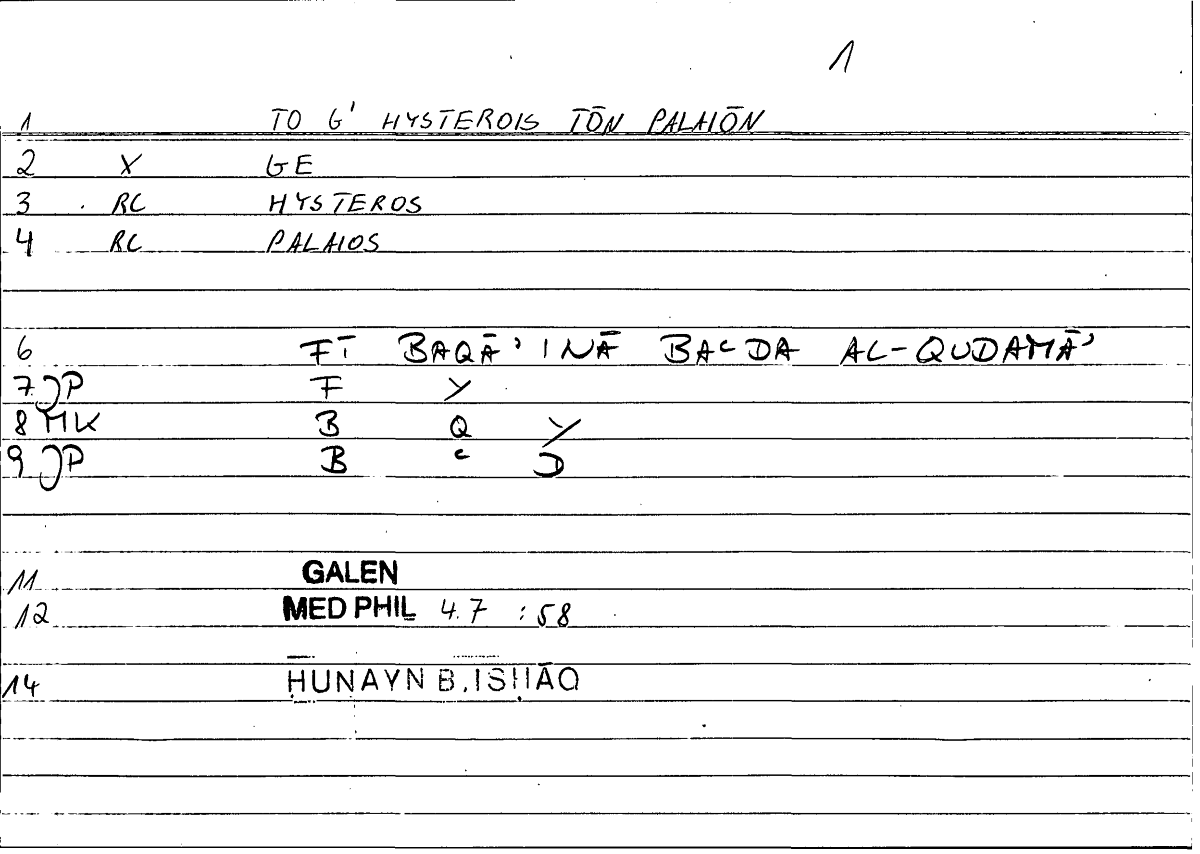 1
1 TO G' HYSTEROIS TŌN PALAIŌN
2 X GE
3 RC HYSTEROS
4 RC PALAIOS
6 FĪ BAQĀʾINĀ BAʿDA AL-QUDAMĀʾ
7 JP F Y
8 MK B Q Y
9 JP B ʿ D
11 GALEN
12 MED PHIL 4.7 :58
14 ḤUNAYN B. ISḤĀQ